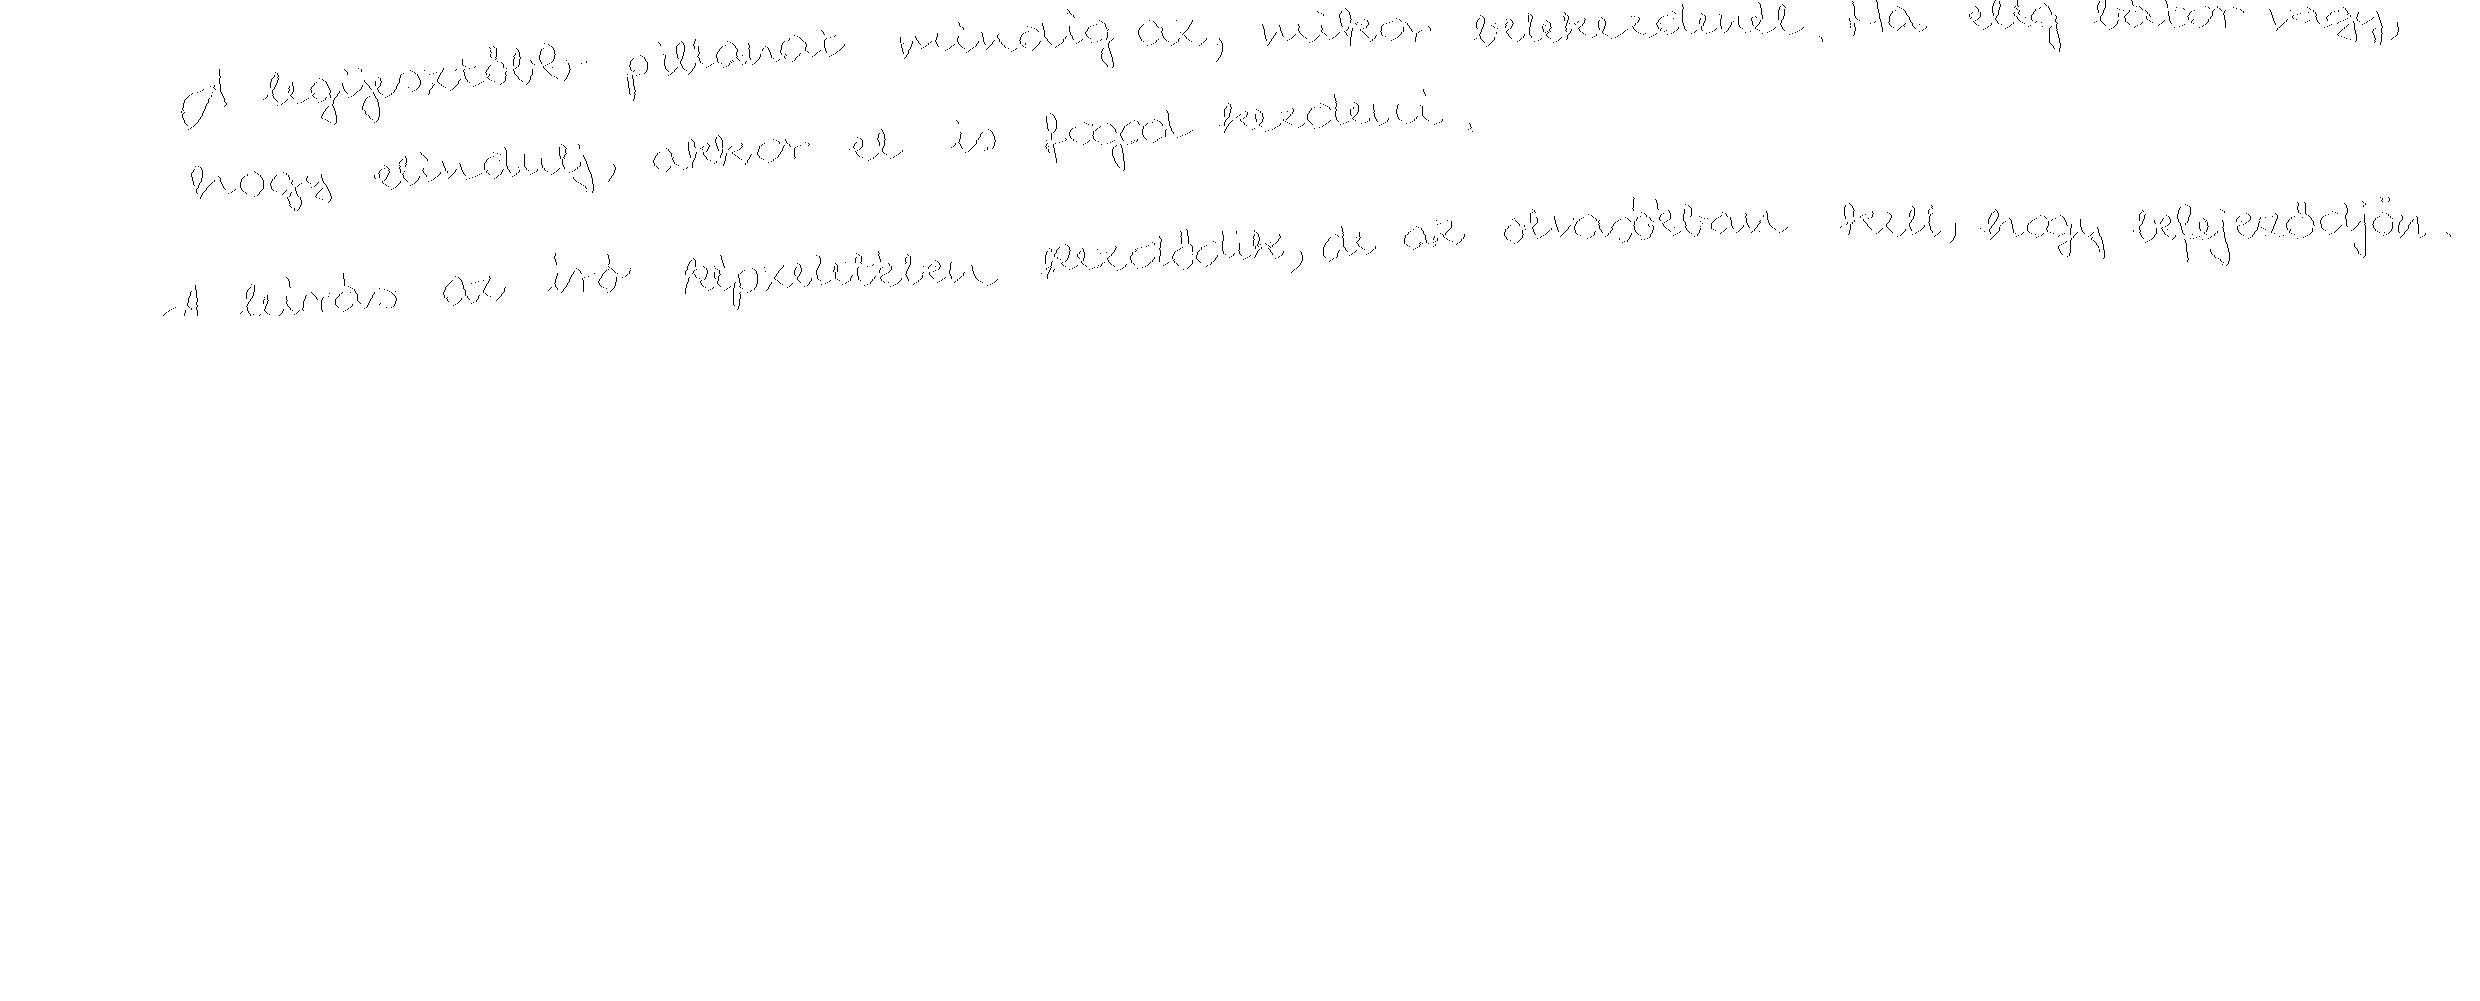 A legijesztőbb pillanat mindig az, mikor belekezdenél. Ha elég bátor vagy,
hogy elindulj, akkor el is fogod kezdeni.
A leírás az író képzeletében kezdődik, de az olvasóéban kell, hogy befejeződjön.